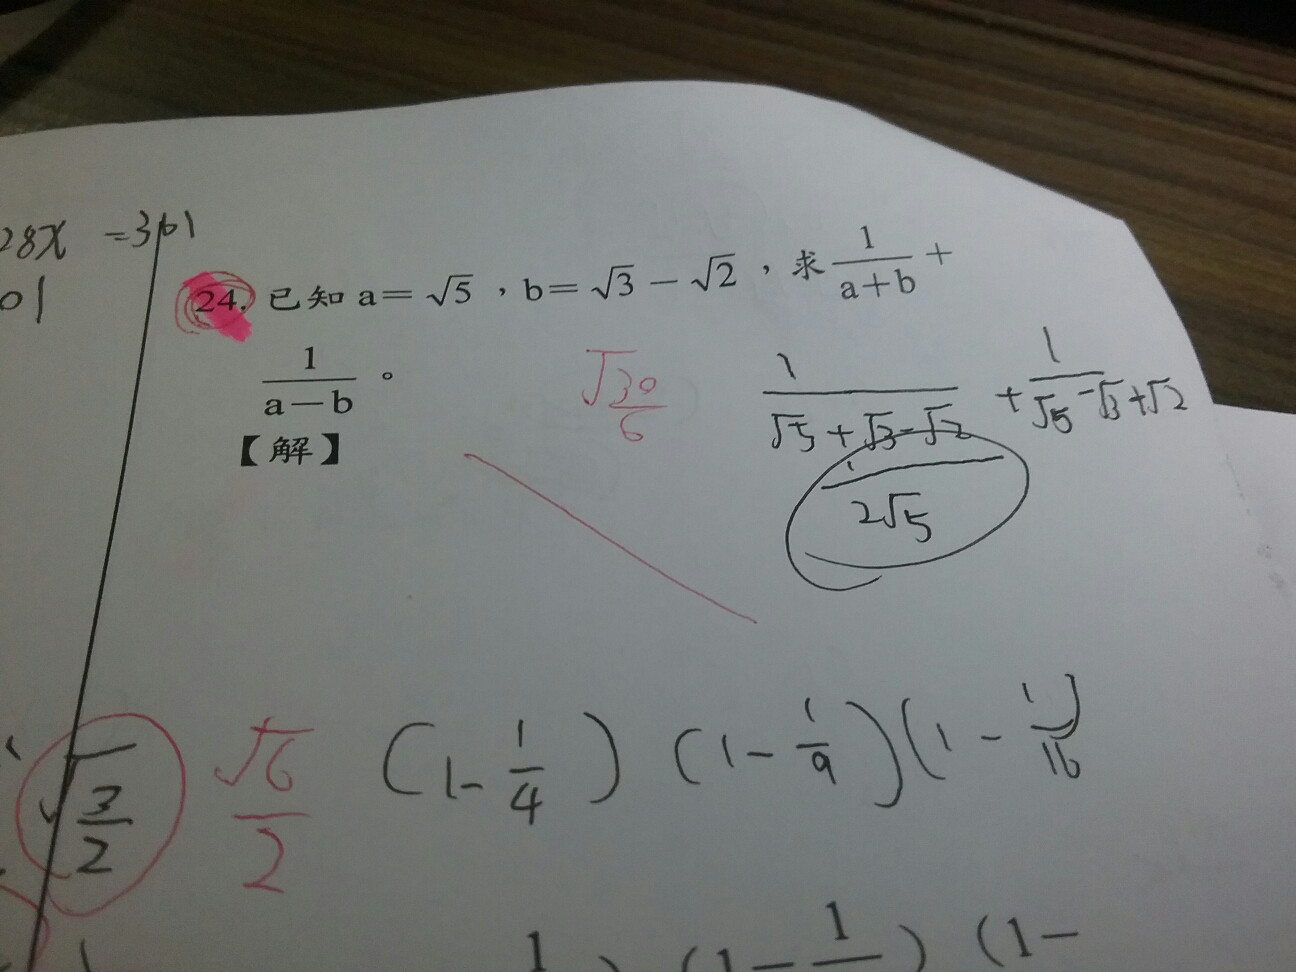 28x = 361
01
24. 已知 a= √5 ，b= √3 − √2 ，求 1/(a+b) +
1/(a−b) 。
√30/6
1/(√5+√3-√2) + 1/(√5-√3+√2)
【解】
1/(2√5)
√(3/2) √6/2 (1-1/4) (1-1/9)(1-1/16)
1 ) (1− 1 ) (1−